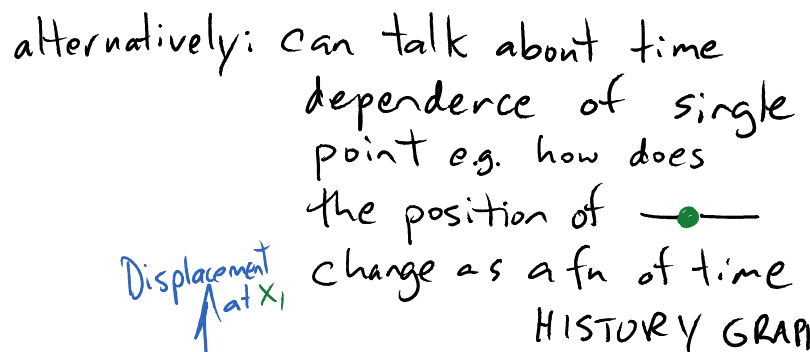 alternatively: can talk about time
dependence of single
point e.g. how does
the position of
change as a fn of time
Displacement
at x₁
HISTORY GRAPH